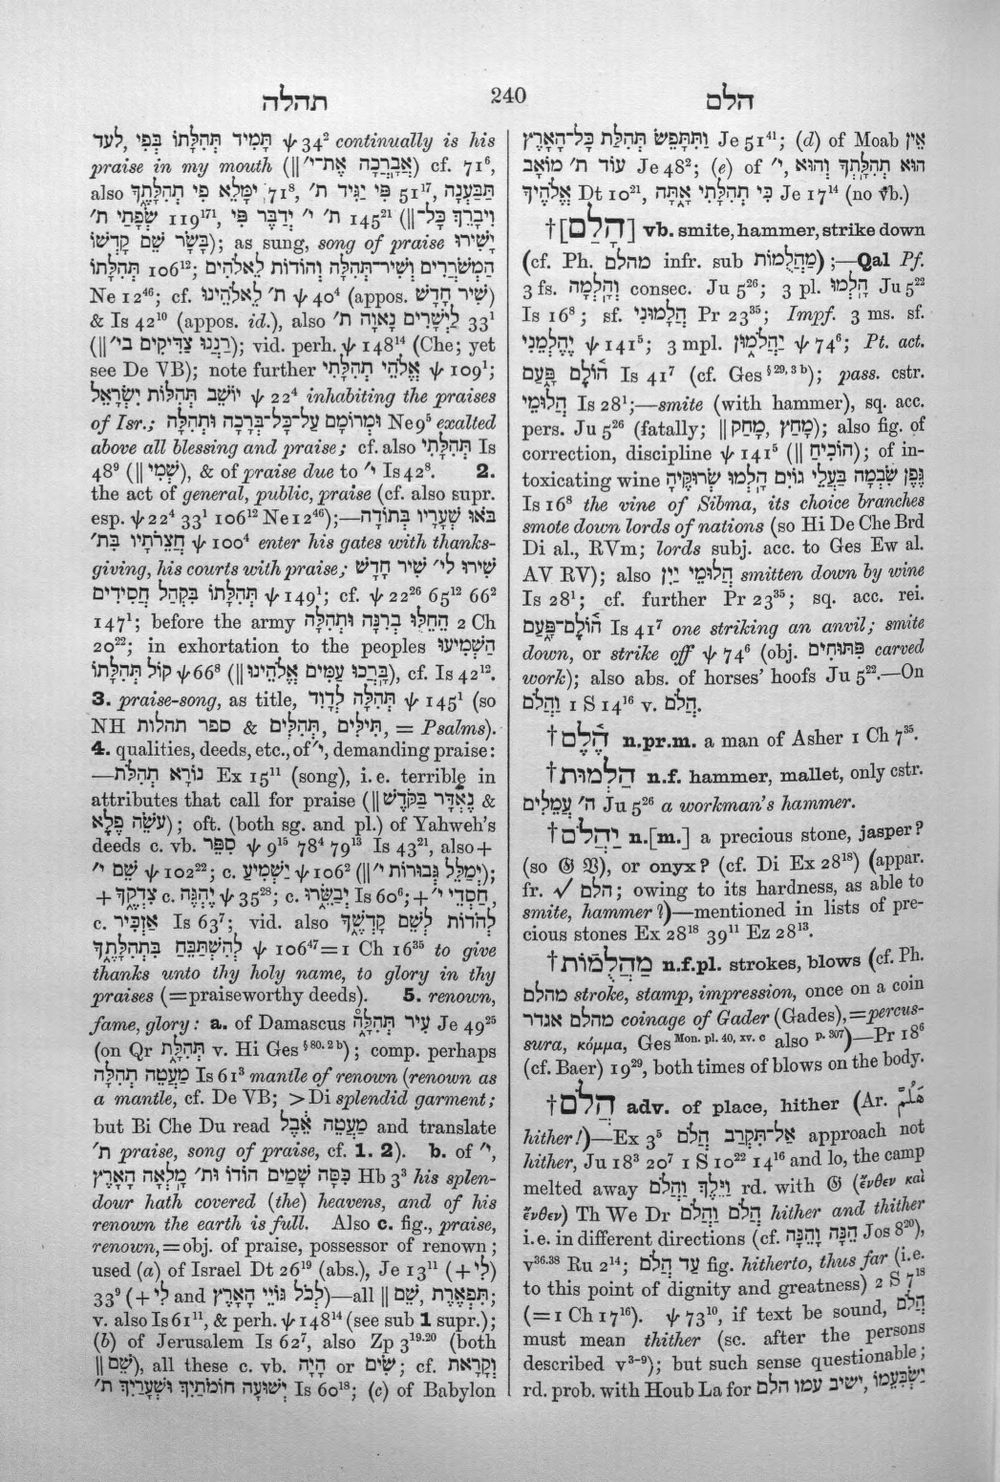 תהלה
240
הלם
תָּמִיד תְּהִלָּתוֹ בְּפִי, לעד ψ 34² continually is his
praise in my mouth (‖ אֲבָרֲכָה אֶת־י״) cf. 71⁶,
also תַּבַּעְנָה, 51¹⁷ פִּי יַגִּיד ת׳, 71⁸ יִמָּלֵא פִי תְהִלָּתֶךָ
119¹⁷¹, שְׂפָתַי ת׳ 145²¹ (‖ ת׳ י״ יְדַבֶּר פִּי, וִיבָרֵךְ כָּל־
בָּשָׂר שֵׁם קָדְשׁוֹ); as sung, song of praise יָשִׁירוּ
תְּהִלָּתוֹ 106¹²; הַמְשֹׁרֲרִים וְשִׁיר־תְּהִלָּה וְהוֹדוֹת לֵאלֹהִים
Ne 12⁴⁶; cf. ת׳ לֵאלֹהֵינוּ ψ 40⁴ (appos. שִׁיר חָדָשׁ)
& Is 42¹⁰ (appos. id.), also לַיְשָׁרִים נָאוָה ת׳ 33¹
(‖ רַנְּנוּ צַדִּיקִים בי״); vid. perh. ψ 148¹⁴ (Che; yet
see De VB); note further אֱלֹהֵי תְהִלָּתִי ψ 109¹;
יוֹשֵׁב תְּהִלּוֹת יִשְׂרָאֵל ψ 22⁴ inhabiting the praises
of Isr.; וּמְרוֹמָם עַל־כָּל־בְּרָכָה וּתְהִלָּה Ne 9⁵ exalted
above all blessing and praise; cf. also תְּהִלָּתִי Is
48⁹ (‖ שְׁמִי), & of praise due to י״ Is 42⁸. 2.
the act of general, public, praise (cf. also supr.
esp. ψ 22⁴ 33¹ 106¹² Ne 12⁴⁶);—בֹּאוּ שְׁעָרָיו בְּתוֹדָה
חֲצֵרֹתָיו בת׳ ψ 100⁴ enter his gates with thanks-
giving, his courts with praise; שִׁירוּ לי״ שִׁיר חָדָשׁ
תְּהִלָּתוֹ בִּקְהַל חֲסִידִים ψ 149¹; cf. ψ 22²⁶ 65¹² 66²
147¹; before the army הֵחֵלּוּ בְרִנָּה וּתְהִלָּה 2 Ch
20²²; in exhortation to the peoples הַשְׁמִיעוּ
קוֹל תְּהִלָּתוֹ ψ 66⁸ (‖ בָּרְכוּ עַמִּים אֱלֹהֵינוּ), cf. Is 42¹².
3. praise-song, as title, תְּהִלָּה לְדָוִד ψ 145¹ (so
NH ספר תהלות & תִּילִים, תְּהִלִּים, תִּילִּים, = Psalms).
4. qualities, deeds, etc., of י״, demanding praise:
—נוֹרָא תְהִלֹּת Ex 15¹¹ (song), i.e. terrible in
attributes that call for praise (‖ נֶאְדָּר בַּקֹּדֶשׁ &
עֹשֵׂה פֶלֶא); oft. (both sg. and pl.) of Yahweh's
deeds c. vb. סִפֵּר ψ 9¹⁵ 78⁴ 79¹³ Is 43²¹, also +
שֵׁם י״ ψ 102²²; c. יַשְׁמִיעַ ψ 106² (‖ יְמַלֵּל גְּבוּרוֹת י״);
+ צִדְקֶךָ c. יֶהְגֶּה ψ 35²⁸; c. יְבַשֵּׂרוּ Is 60⁶; + חַסְדֵי י״,
c. אַזְכִּיר Is 63⁷; vid. also לְהֹדוֹת לְשֵׁם קָדְשֶׁךָ
לְהִשְׁתַּבֵּחַ בִּתְהִלָּתֶךָ ψ 106⁴⁷ = 1 Ch 16³⁵ to give
thanks unto thy holy name, to glory in thy
praises (= praiseworthy deeds). 5. renown,
fame, glory: a. of Damascus עִיר תְּהִלָּה Je 49²⁵
(on Qr תְּהִלָּת v. Hi Ges § 80. 2 b); comp. perhaps
מַעֲטֵה תְהִלָּה Is 61³ mantle of renown (renown as
a mantle, cf. De VB; > Di splendid garment;
but Bi Che Du read מַעֲטֵה אֵבֶל and translate
ת׳ praise, song of praise, cf. 1. 2). b. of י״,
כִּסָּה שָׁמַיִם הוֹדוֹ ות׳ מָלְאָה הָאָרֶץ Hb 3³ his splen-
dour hath covered (the) heavens, and of his
renown the earth is full. Also c. fig., praise,
renown, = obj. of praise, possessor of renown;
used (a) of Israel Dt 26¹⁹ (abs.), Je 13¹¹ (+ לִי)
33⁹ (+ לִי and לְכֹל גּוֹיֵי הָאָרֶץ)—all ‖ תִּפְאֶרֶת, שֵׁם;
v. also Is 61¹¹, & perh. ψ 148¹⁴ (see sub 1 supr.);
(b) of Jerusalem Is 62⁷, also Zp 3¹⁹·²⁰ (both
‖ שֵׁם), all these c. vb. הָיָה or שִׂים; cf. וְקָרָאת
יְשׁוּעָה חוֹמֹתַיִךְ וּשְׁעָרַיִךְ ת׳ Is 60¹⁸; (c) of Babylon
וַתִּתָּפֵשׂ תְּהִלַּת כָּל־הָאָרֶץ Je 51⁴¹; (d) of Moab אֵין
עוֹד ת׳ מוֹאָב Je 48²; (e) of י״, הוּא תְהִלָּתְךָ וְהוּא
אֱלֹהֶיךָ Dt 10²¹, כִּי תְהִלָּתִי אָתָּה Je 17¹⁴ (no vb.)
† [הָלַם] vb. smite, hammer, strike down
(cf. Ph. מהלם infr. sub מַהֲלֻמוֹת);—Qal Pf.
3 fs. וְהָלְמָה consec. Ju 5²⁶; 3 pl. הָלְמוּ Ju 5²²
Is 16⁸; sf. הֲלָמוּנִי Pr 23³⁵; Impf. 3 ms. sf.
יֶהֶלְמֵנִי ψ 141⁵; 3 mpl. יַהֲלֹמוּן ψ 74⁶; Pt. act.
הוֹלֶם פָּעַם Is 41⁷ (cf. Ges § 29, 3 b); pass. cstr.
הֲלוּמֵי Is 28¹;—smite (with hammer), sq. acc.
pers. Ju 5²⁶ (fatally; ‖ מָחַץ, מָחַק); also fig. of
correction, discipline ψ 141⁵ (‖ הוֹכִיחַ); of in-
toxicating wine גֶּפֶן שִׂבְמָה בַּעֲלֵי גוֹיִם הָלְמוּ שְׂרוּקֶּיהָ
Is 16⁸ the vine of Sibma, its choice branches
smote down lords of nations (so Hi De Che Brd
Di al., RVm; lords subj. acc. to Ges Ew al.
AV RV); also הֲלוּמֵי יָיִן smitten down by wine
Is 28¹; cf. further Pr 23³⁵; sq. acc. rei.
הוֹלֶם־פָּעַם Is 41⁷ one striking an anvil; smite
down, or strike off ψ 74⁶ (obj. פִּתּוּחִים carved
work); also abs. of horses' hoofs Ju 5²².—On
וַהֲלֹם 1 S 14¹⁶ v. הֲלֹם.
† הֵלֶם n.pr.m. a man of Asher 1 Ch 7³⁵.
† הַלְמוּת n.f. hammer, mallet, only cstr.
ה׳ עֲמֵלִים Ju 5²⁶ a workman's hammer.
† יַהֲלֹם n.[m.] a precious stone, jasper?
(so 𝔊 𝔙), or onyx? (cf. Di Ex 28¹⁸) (appar.
fr. √ הלם; owing to its hardness, as able to
smite, hammer?)—mentioned in lists of pre-
cious stones Ex 28¹⁸ 39¹¹ Ez 28¹³.
† מַהֲלֻמוֹת n.f.pl. strokes, blows (cf. Ph.
מהלם stroke, stamp, impression, once on a coin
מהלם אגדר coinage of Gader (Gades), = percus-
sura, κόμμα, Ges Mon. pl. 40, xv. c also p. 307)—Pr 18⁶
(cf. Baer) 19²⁹, both times of blows on the body.
† הֲלֹם adv. of place, hither (Ar. هَلُمَّ
hither!)—Ex 3⁵ אַל־תִּקְרַב הֲלֹם approach not
hither, Ju 18³ 20⁷ 1 S 10²² 14¹⁶ and lo, the camp
melted away וַיֵּלֶךְ וַהֲלֹם rd. with 𝔊 (ἔνθεν καὶ
ἔνθεν) Th We Dr הֲלֹם וַהֲלֹם hither and thither
i.e. in different directions (cf. הֵנָּה וָהֵנָּה Jos 8²⁰),
v³⁶·³⁸ Ru 2¹⁴; עַד הֲלֹם fig. hitherto, thus far (i.e.
to this point of dignity and greatness) 2 S 7¹⁸
(= 1 Ch 17¹⁶). ψ 73¹⁰, if text be sound, הֲלֹם
must mean thither (sc. after the persons
described v³⁻⁹); but such sense questionable;
rd. prob. with Houb La for ישיב עמו הלם, יַשְׂבִּעֵמוֹ